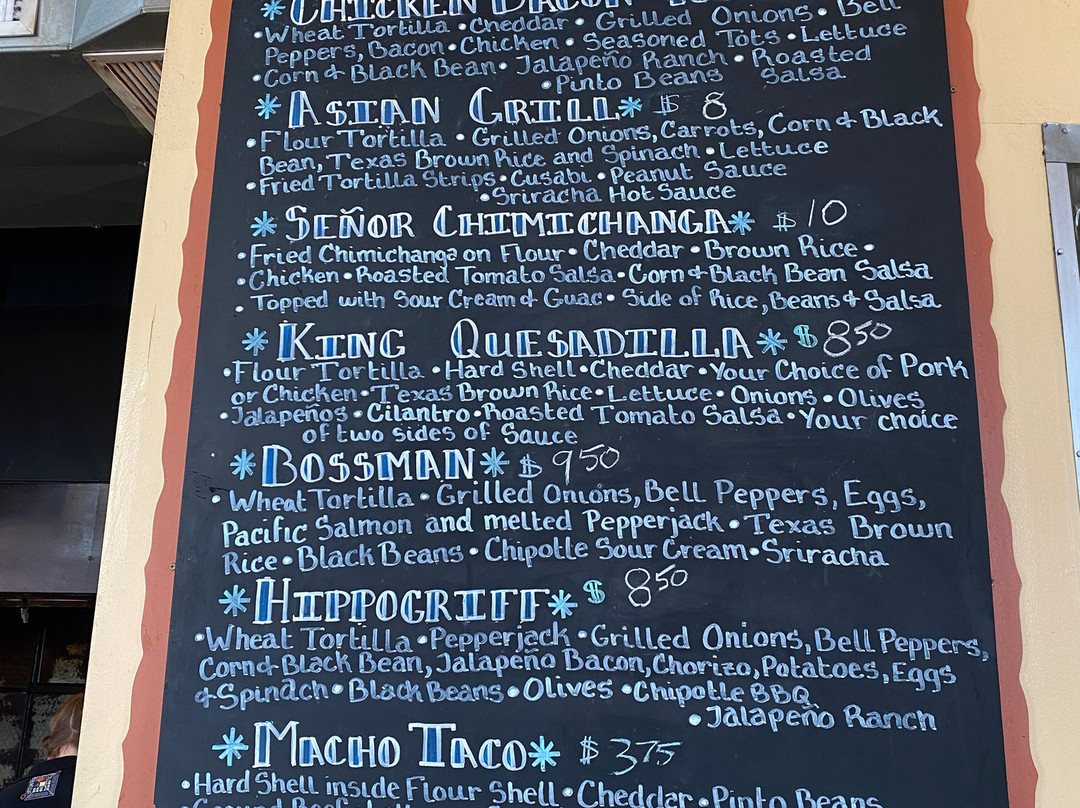 *CHICKEN BACON
•Wheat Tortilla •Cheddar • Grilled Onions• Bell
Peppers, Bacon•Chicken • Seasoned Tots •Lettuce
•Corn & Black Bean• Jalapeño Ranch • Roasted
•Pinto Beans Salsa
*ASIAN GRILL* $ 8
•Flour Tortilla •Grilled Onions, Carrots, Corn & Black
Bean, Texas Brown Rice and Spinach •Lettuce
•Fried Tortilla Strips•Cusabi •Peanut Sauce
•Sriracha Hot Sauce
*SEÑOR CHIMICHANGA* $10
•Fried Chimichanga on Flour• Cheddar •Brown Rice•
•Chicken•Roasted Tomato Salsa•Corn & Black Bean Salsa
•Topped with Sour Cream & Guac• Side of Rice, Beans & Salsa
*KING QUESADILLA* $8 50
•Flour Tortilla •Hard Shell•Cheddar•Your Choice of Pork
or Chicken•Texas Brown Rice•Lettuce• Onions •Olives
•Jalapeños •Cilantro•Roasted Tomato Salsa•Your choice
of two sides of Sauce
*BOSSMAN* $ 9 50
•Wheat Tortilla •Grilled Onions, Bell Peppers, Eggs,
Pacific Salmon and melted Pepperjack •Texas Brown
Rice•Black Beans •Chipotle Sour Cream•Sriracha
*HIPPOGRIFF* $ 8 50
•Wheat Tortilla •Pepperjack •Grilled Onions, Bell Peppers,
Corn & Black Bean, Jalapeño Bacon, Chorizo, Potatoes, Eggs
& Spinach•Black Beans•Olives •Chipotle BBQ
•Jalapeño Ranch
*MACHO TACO* $ 3 75
•Hard Shell inside Flour Shell•Cheddar•Pinto Beans